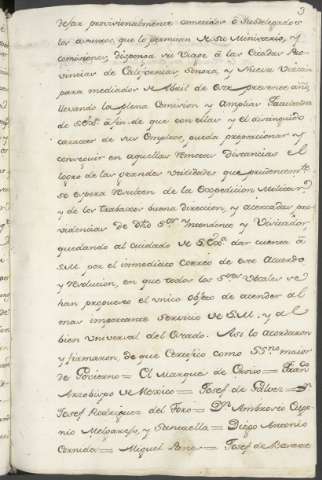 3
dejar provisionalmente cometidos ô Subdelegados
los asumtos, que lo permitan de su Ministerio, y
comisiones, disponga su viage â las Citadas Pro-
vincias de Californias, Sonora, y Nueva Vizcaya
para mediados de Abril de este presente año,
llevando la plena Comision, y amplias facultades
de S.Exâ. â fin de que con ellas y el distinguido
caracter de sus Empleos, pueda proporcionar y
conseguir en aquellas remotas distancias el
logro de las grandes utilidades que prudentemte.
se espera resulten de la Expedicion Militar,
y de los trabajos buena direccion, y acertadas pro-
videncias de dho Sor. Intendente y Visitador,
quedando al cuidado de S.Exâ. dar cuenta â
S.M. por el inmediato Correo de este Acuerdo
y Resolucion, en que todos los Sres. Vocales se
han propuesto el unico objeto de atender al
mas importante Servicio de S.M. y del
bien universal del Estado. Asi lo acordaron
y firmaron, de que Certifico como SSno. maior
de Govierno = El Marques de Croix = Franco.
Arzobispo de Mexico = Josef de Galvez = Dn.
Josef Rodriguez del Toro = Dn. Ambrosio Euge-
nio Melgarejo, y Santaella = Diego Antonio
Cornide = Miguel Paez = Josef de Basarte